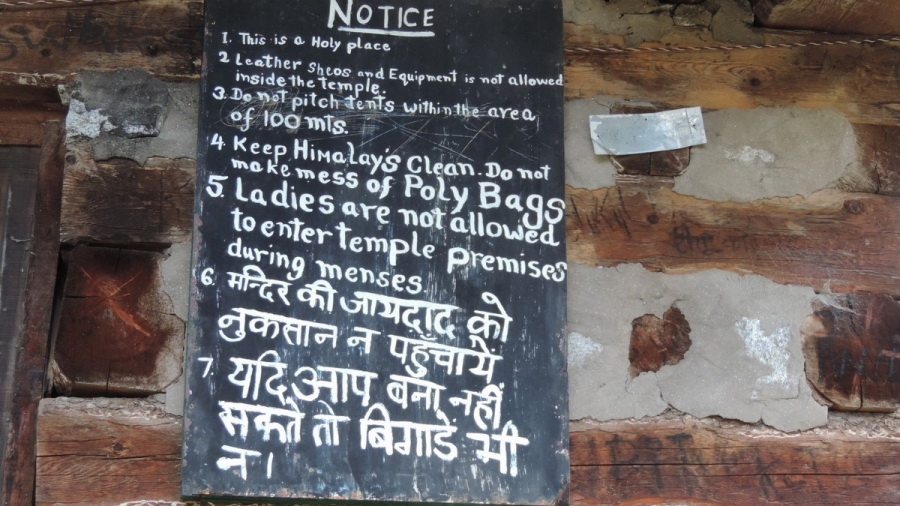 NOTICE
1. This is a Holy place
2 Leather Sheos and Equipment is not allowed
inside the temple.
3. Do not pitch tents within the area
of 100 mts.
4. Keep Himalay's Clean. Do not
make mess of Poly Bags
5. Ladies are not allowed
to enter temple premises
during menses
6. मन्दिर की जायदाद को
नुकसान न पहुँचायें
7. यदि आप बना नहीं
सकते तो बिगाडे भी
न।